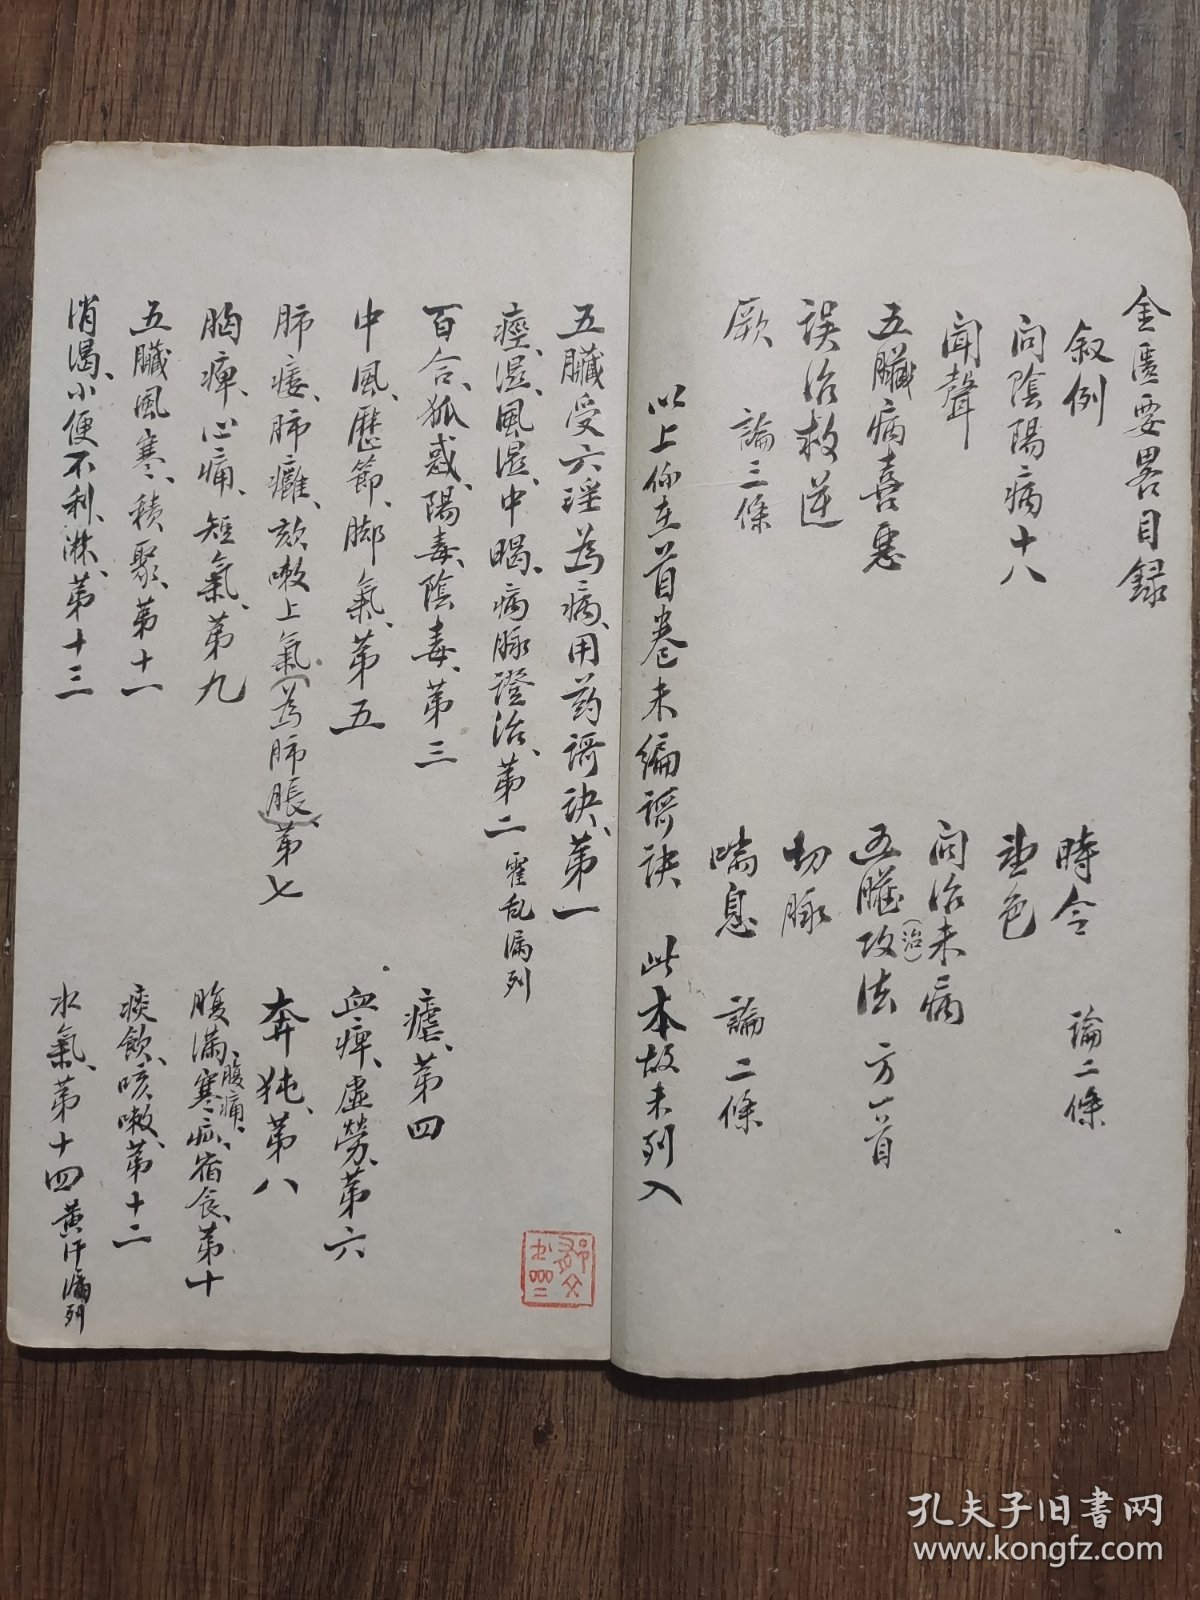 金匱要畧目録
叙例
時令 論二條
問陰陽病十八
望色
聞聲
問治未病
五臟病喜惡
五臟攻(治)法 方六首
誤治救逆
切脉
厥 論三條
喘息 論二條
以上係在首卷未編謌訣 此本故未列入
五臟受六淫為病、用药謌訣、第一
痙、濕、風濕、中暍、病脉證治、第二 霍乱漏列
百合、狐惑、陽毒、陰毒、第三
瘧、第四
中風、歷節、脚氣、第五
血痺、虛勞、第六
肺痿、肺癰、欬嗽上氣(為肺脹)、第七
奔㹠、第八
胸痺、心痛、短氣、第九
腹滿、腹痛、寒疝、宿食、第十
五臟風寒、積聚、第十一
痰飲、咳嗽、第十二
消渴、小便不利、淋、第十三
水氣、第十四 黃汗漏列
孔夫子旧书网
www.kongfz.com